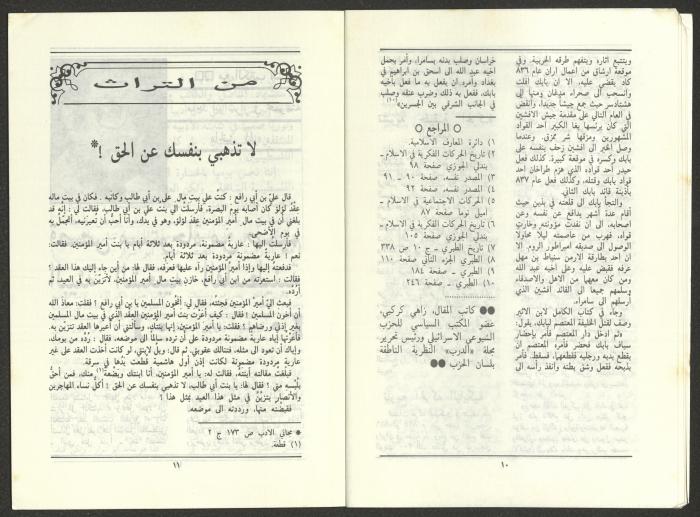 وبتتبع آثاره ويتفهم طرقه الحربية. وفي
موقعة ارشاق من اعمال اران عام ٨٣٦
كاد يقضي عليه. الا ان بابك افلت
وانسحب الى صحراء مدغان ومنها الى
هشتادسر حيث جمع جيشا جديداً، وانقض
في العام التالي على مقدمة جيش الافشين
التي كان يرئسها بغا الكبير احد القواد
المشهورين ومزقها شر ممزق. وعندما
وصل الخبر الى افشين زحف بنفسه على
بابك وكسره في موقعة كبيرة. كذلك فعل
حيدر احد قواده الذي هزم طراخان احد
قواد بابك وقتله، وكذلك فعل عام ٨٣٧
بآذينة قائد بابك الثاني.
والتجأ بابك الى قلعته في بذين حيث
اقام عدة اشهر يدافع عن نفسه وعن
اصحابه. الى ان نفذت مؤونته وخارت
قواه، فهرب من عاصمته ليلا محاولا
الوصول الى صديقه امبراطور الروم. الا
ان احد بطارقة الارمن سنباط بن سهل
عرفه فقبض عليه وعلى اخيه عبد الله
ومن كان معهما من الاهل والاصدقاء
وسلمهم جميعا الى القائد افشين الذي
ارسلهم الى سامراء.
وجاء في كتاب الكامل لابن الاثير
وصف لقتل الخليفة المعتصم لبابك، يقول:
«ثم ادخل دار المعتصم فأمر بإحضار
سياف بابك فحضر فأمره المعتصم ان
يقطع يديه ورجليه فقطعهما، فسقط. فأمر
بذبحه ففعل وشق بطنه وانفذ رأسه الى
خراسان وصلب بدنه بسامرا، وأمر بحمل
اخيه عبد الله الى اسحق بن ابراهيم في
بغداد وأمره ان يفعل به ما فعل بأخيه
بابك، ففعل به ذلك وضرب عنقه وصلب
في الجانب الشرقي بين الجسرين»(١٠)
○ المراجع ○
١) دائرة المعارف الاسلامية.
٢) تاريخ الحركات الفكرية في الاسلام ـ
بندلي الجوزي صفحة ٩٨
٣) المصدر نفسه، صفحة ٩٠ ـ ٩١
٤) المصدر نفسه، صفحة ٩٢
٥) الحركات الاجتماعية في الاسلام ـ
اميل توما صفحة ٨٧
٦) تاريخ الحركات الفكرية في الاسلام ـ
بندلي الجوزي صفحة ١٠٥
٧) تاريخ الطبري ـ ج ١٠ ص ٣٣٨
٨) الطبري الجزء الثاني صفحة ١١٠
٩) الطبري ـ صفحة ١٨٤
١٠) الطبري ـ صفحة ٢٤٦
●● كاتب المقال، زاهي كركبي،
عضو المكتب السياسي للحزب
الشيوعي الاسرائيلي ورئيس تحرير
مجلة «الدرب» النظرية الناطقة
بلسان الحزب ●●
١٠
من التراث
لا تذهبي بنفسك عن الحق ! *
قال عليّ بن أبي رافع : كنتُ على بيت مال علي بن أبي طالب وكاتبه. فكان في بيت ماله
عقد لؤلؤ كان أصابه يومَ البصرة، فأرسلت الي بنت علي بن أبي طالب، فقالت لي : إنه قد
بلغني أن في بيت مال أمير المؤمنين عِقد لؤلؤ، وهو في يدك، وأنا أحب أن تعيرنيه، أتجمّل به
في يوم الأضحى.
فأرسلت إليها : عاريةٌ مضمونة، مردودة بعد ثلاثة أيام يا بنت أمير المؤمنين. فقالت:
نعم ! عارية مضمونة مردودة بعد ثلاثة أيام.
فدفعته إليها وإذا أمير المؤمنين رآه عليها فعرفه، فقال لها: من أين جاء إليك هذا العقد ؟
فقالت : استعرته من ابن أبي رافع، خازن بيت مال أمير المؤمنين، لأتزين به في العيد، ثم
أرُدّه.
فبعث اليّ أميرُ المؤمنين فجئته، فقال لي: أتخون المسلمين يا بن أبي رافع ؟ فقلت: معاذَ الله
أن أخون المسلمين ! فقال : كيف أعَرْتَ بنت أمير المؤمنين العِقد الذي في بيت مال المسلمين
بغير إذني ورضاهم ؟ فقلت : يا أمير المؤمنين، إنها بنتك، وسألتني أن أعيرها العقد تتزين به،
فأعَرْتُها إياه عارية مضمونة مردودة على أن ترده سالماً الى موضعه، فقال : رُدّه من يومك،
وإياك أن تعود الى مثله، فتنالك عقوبتي. ثم قال: ويل لإبنتي، لو كانت أخذت العقد على غير
عارية مردودة مضمونة لكانت إذن أول هاشمية قُطعت يدُها في سرقة.
فبلغت مقالته إبنته، فقالت له: يا أمير المؤمنين، أنا ابنتك وبضْعة(١) منك، فمن أحق
بلُبسه مني ؟ فقال لها: يا بنت أبي طالب، لا تذهبي بنفسك عن الحق : أكلّ نساء المهاجرين
والأنصار يتزيّنَّ في مثل هذا العيد بمثل هذا ؟
فقبضته منها، ورددته الى موضعه.
* مجاني الادب ص ١٧٣ ج ٢
(١) قطعة.
١١